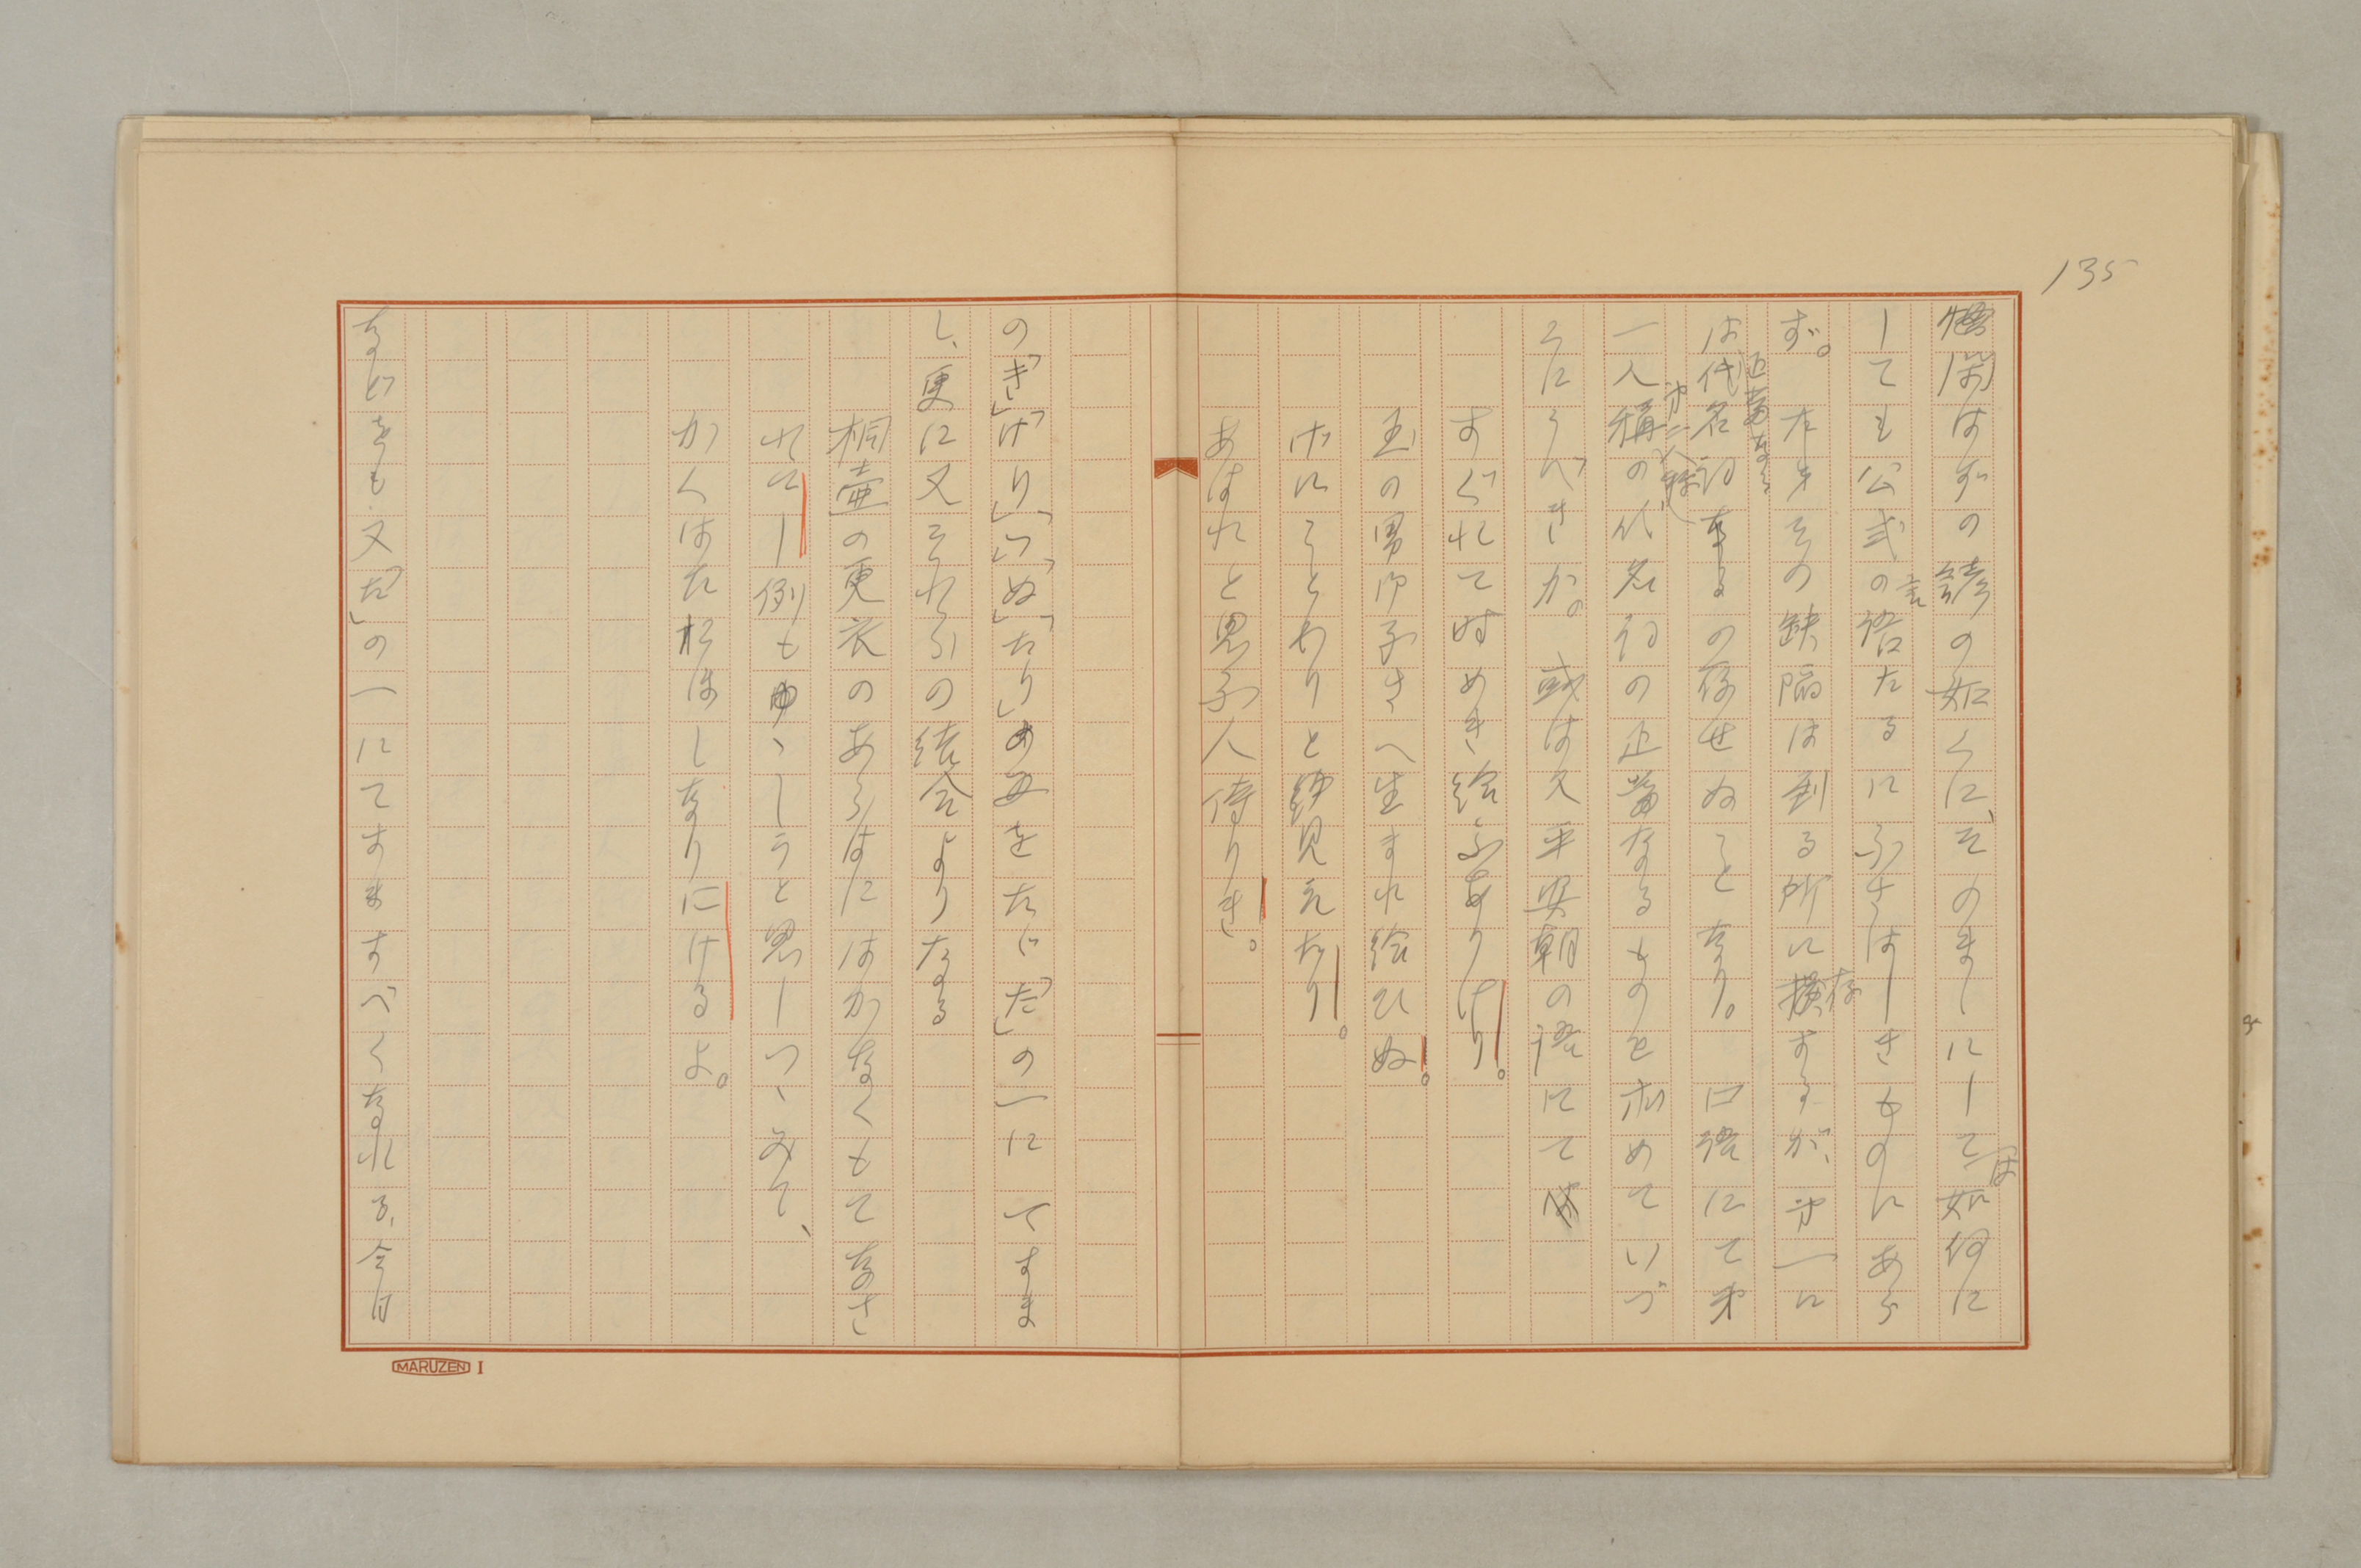 135
はずの語の如くに、そのまゝにしては如何に
しても公式の言語たるにふさはしきものにあら
ず。なほその缺陥は到る所に存するが、第一に
は代名詞の存せぬことなり。口語にて第
一人稱の代名詞の正當なるものを求めていづ
こにうべきか。或は又平安朝の語にて
すぐれて時めき給ふありけり。
玉の男御子さへ生まれ給ひぬ。
げにことわりと見えたり。
あはれと思ふ人侍りき。
の「き」「けり」「つ」「ぬ」「たり」をたゞ「だ」の一にてすま
し、更に又それらの結合よりなる
桐壷の更衣のあらはにはかなくもてなさ
れてし例もゆゝしうと思しつゝみて、
かくはた おはしなりにけるよ。
などをも又「だ」の一にてすますべくなれる、今日
MARUZEN I